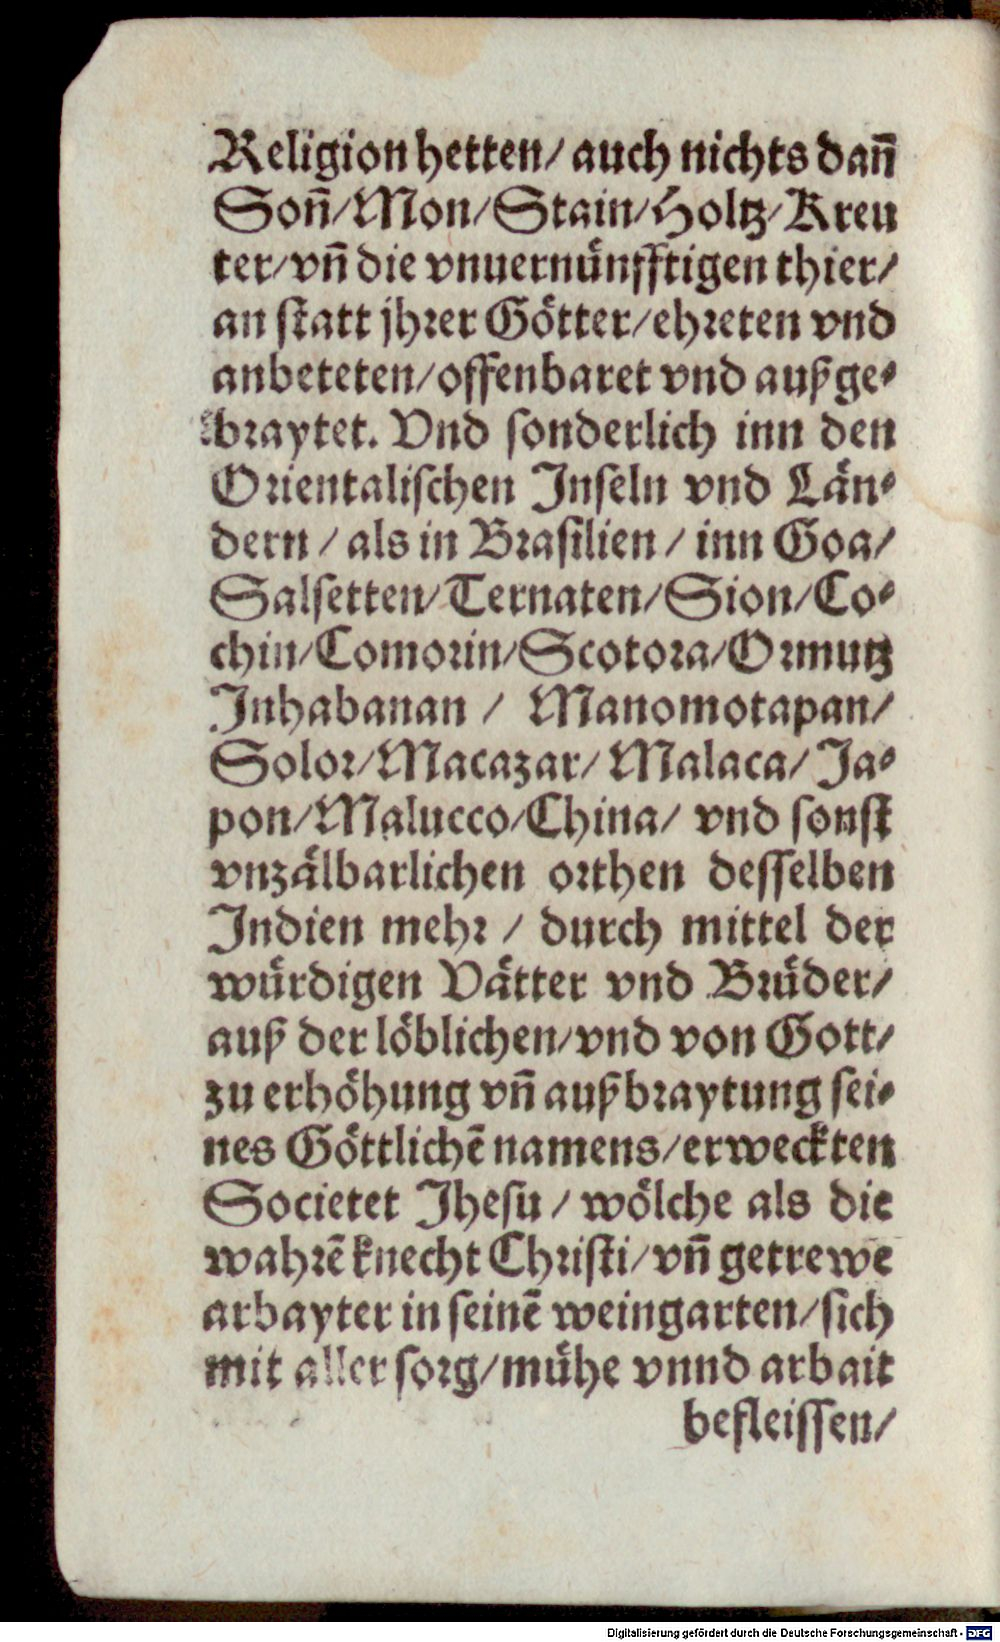 Religion hetten/ auch nichts dañ
Soñ/Mon/Stain/Holtz/Kreu
ter/vñ die vnuernünfftigen thier/
an statt jhrer Götter/ehreten vnd
anbeteten/offenbaret vnd außge-
braytet. Vnd sonderlich inn den
Orientalischen Inseln vnd Län-
dern / als in Brasilien / inn Goa/
Salsetten/Ternaten/Sion/Co-
chin/Comorin/Scotora/Ormutz
Inhabanan / Manomotapan/
Solor/Macazar/Malaca/ Ja-
pon/Malucco/China/ vnd sonst
vnzälbarlichen orthen desselben
Indien mehr / durch mittel der
würdigen Vätter vnd Brüder/
auß der löblichen/vnd von Gott/
zu erhöhung vñ außbraytung sei-
nes Göttlichē namens/erweckten
Societet Jhesu / wölche als die
wahrē knecht Christi/vñ getrewe
arbayter in seinē weingarten/sich
mit aller sorg/mühe vnnd arbait
befleissen/
Digitalisierung gefördert durch die Deutsche Forschungsgemeinschaft - DFG